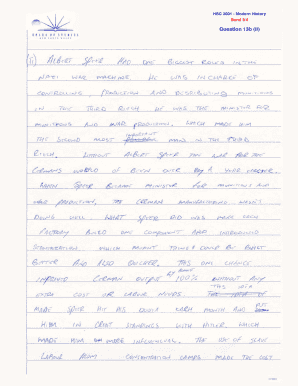 BOARD OF STUDIES
NEW SOUTH WALES
HSC 2001 - Modern History
Band 3/4
Question 13b (ii)
(ii) ALBERT SPEER HAD THE BIGGEST ROLES IN THE
NAZI WAR MACHINE. HE WAS IN CHARGE OF
CONTROLLING, PRODUCTION AND DISTRIBUTING MUNITIONS
IN THE THIRD REICH. HE WAS THE MINISTER FOR
MUNITIONS AND WAR PRODUCTION, WHICH MADE HIM
THE SECOND MOST IMPORTANT MAN IN THE THIRD
REICH, WITHOUT ALBERT SPEER THE WAR FOR THE
GERMANS WOULD OF BEEN OVER A YEAR
WHEN SPEER BECAME MINISTER FOR MUNITIONS AND
WAR PRODUCTION, THE GERMAN MANUFACTURING WASN'T
DOING WELL. WHAT SPEER DID WAS MAKE EACH
FACTORY BUILD ONE COMPONENT AND
STANDARDISATION WHICH MEANT THINGS COULD BE BUILT
BETTER AND ALSO QUICKER. THIS ONE CHANCE
IMPROVED GERMAN OUTPUT BY ABOUT 100% WITHOUT ANY
EXTRA COST OR LABOUR NEEDS. THIS ALSO
MADE SPEER HIT HIS QUOTA EACH MONTH AND PUT
HIM IN GREAT STANDINGS WITH HITLER, WHICH
MADE HIM MORE INFLUENTIAL. THE USE OF SLAVE
LABOUR FROM CONCENTRATION CAMPS MADE THE COST